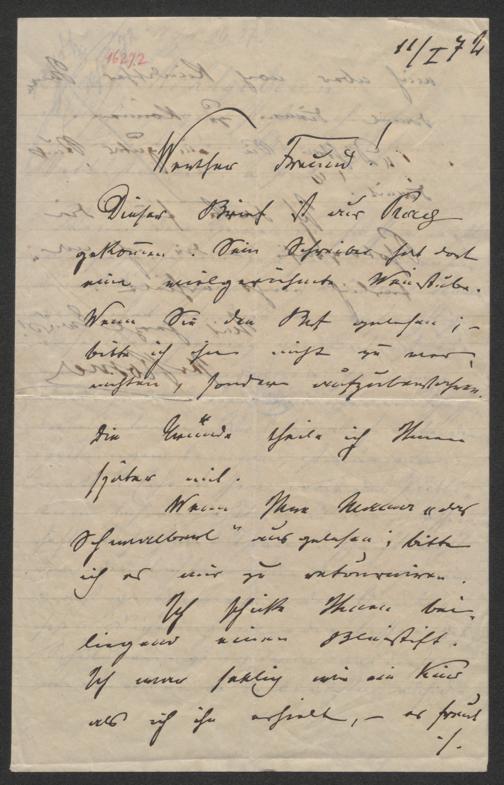 16272
11/I 72
Werther Freund!
Dieser Brief ist aus Prag
gekommen. Sein Schreiber hat dort
eine vielgerühmte Weinstube.
Wenn Sie den gelesen; –
bitte ich ihn nicht zu ver-
nichten, sondern aufzubewahren.
Die Gründe theile ich Ihnen
später mit.
Wenn Ihre Mama „das
" ausgelesen; bitte
ich es mir zu retourniren.
Ich schicke Ihnen bei-
liegend einen Bleistift.
Ich war selig wie ein Kind
als ich ihn erhielt, – es freut
./.